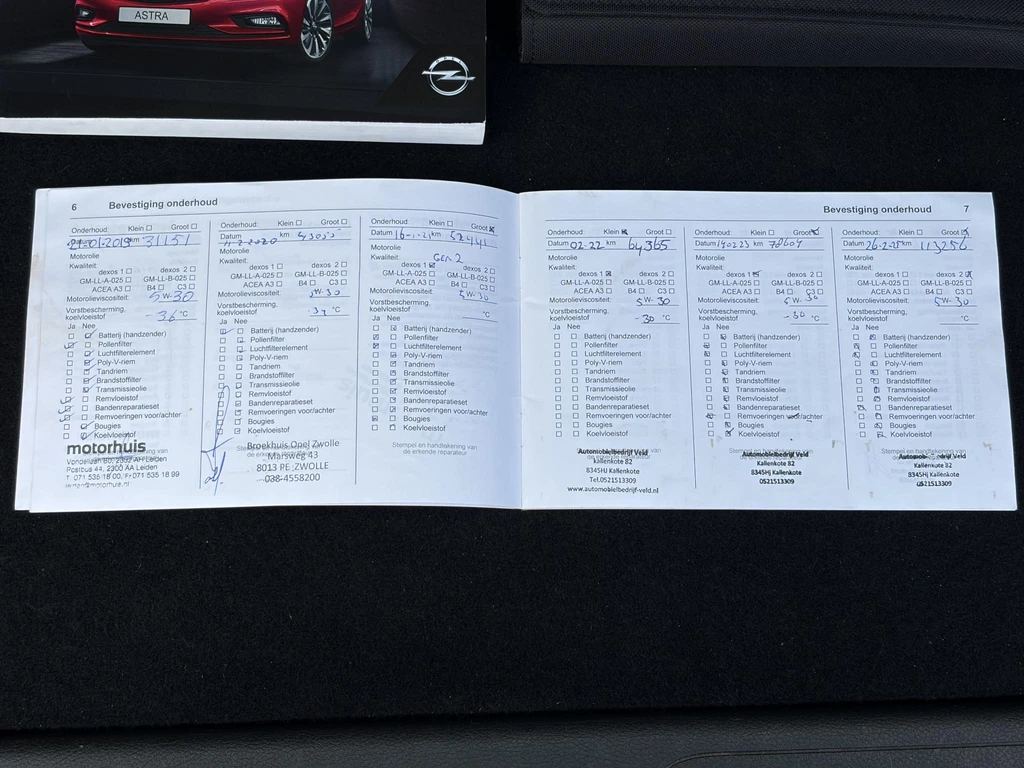 ASTRA
OPEL
6 Bevestiging onderhoud
Onderhoud: Klein Groot
Datum 21-01-2019 km 31151
Motorolie
Kwaliteit:
dexos 1 dexos 2
GM-LL-A-025 GM-LL-B-025
ACEA A3 B4 C3
Motorolieviscositeit: 5W-30
Vorstbescherming,
koelvloeistof -36 °C
Ja Nee
Batterij (handzender)
Pollenfilter
Luchtfilterelement
Poly-V-riem
Tandriem
Brandstoffilter
Transmissieolie
Remvloeistof
Bandenreparatieset
Remvoeringen voor/achter
Bougies
Koelvloeistof
motorhuis
Vondellaan 80, 2332 AH Leiden
Postbus 44, 2300 AA Leiden
T. 071 535 18 00, F. 071 535 18 99
Onderhoud: Klein Groot
Datum 2020 km
Motorolie
Kwaliteit:
dexos 1 dexos 2
GM-LL-A-025 GM-LL-B-025
ACEA A3 B4 C3
Motorolieviscositeit: 5W-30
Vorstbescherming,
koelvloeistof °C
Ja Nee
Batterij (handzender)
Pollenfilter
Luchtfilterelement
Poly-V-riem
Tandriem
Brandstoffilter
Transmissieolie
Remvloeistof
Bandenreparatieset
Remvoeringen voor/achter
Bougies
Koelvloeistof
Broekhuis Opel Zwolle
Marsweg 43
8013 PE ZWOLLE
038-4558200
Onderhoud: Klein Groot
Datum km 52441
Motorolie
Gen 2
Kwaliteit:
dexos 1 dexos 2
GM-LL-A-025 GM-LL-B-025
ACEA A3 B4 C3
Motorolieviscositeit: 5W-30
Vorstbescherming,
koelvloeistof °C
Ja Nee
Batterij (handzender)
Pollenfilter
Luchtfilterelement
Poly-V-riem
Tandriem
Brandstoffilter
Transmissieolie
Remvloeistof
Bandenreparatieset
Remvoeringen voor/achter
Bougies
Koelvloeistof
Stempel en handtekening van
de erkende reparateur
Bevestiging onderhoud 7
Onderhoud: Klein Groot
Datum 02-22 km 64365
Motorolie
Kwaliteit:
dexos 1 dexos 2
GM-LL-A-025 GM-LL-B-025
ACEA A3 B4 C3
Motorolieviscositeit: 5W-30
Vorstbescherming,
koelvloeistof -30 °C
Ja Nee
Batterij (handzender)
Pollenfilter
Luchtfilterelement
Poly-V-riem
Tandriem
Brandstoffilter
Transmissieolie
Remvloeistof
Bandenreparatieset
Remvoeringen voor/achter
Bougies
Koelvloeistof
Automobielbedrijf Veld
Kallenkote 82
8345HJ Kallenkote
Tel.0521513309
www.automobielbedrijf-veld.nl
Onderhoud: Klein Groot
Datum 140223 km 78604
Motorolie
Kwaliteit:
dexos 1 dexos 2
GM-LL-A-025 GM-LL-B-025
ACEA A3 B4 C3
Motorolieviscositeit: 5W-30
Vorstbescherming,
koelvloeistof -30 °C
Ja Nee
Batterij (handzender)
Pollenfilter
Luchtfilterelement
Poly-V-riem
Tandriem
Brandstoffilter
Transmissieolie
Remvloeistof
Bandenreparatieset
Remvoeringen voor/achter
Bougies
Koelvloeistof
Automobielbedrijf Veld
Kallenkote 82
8345HJ Kallenkote
0521513309
Onderhoud: Klein Groot
Datum 26-2-25 km 113256
Motorolie
Kwaliteit:
dexos 1 dexos 2
GM-LL-A-025 GM-LL-B-025
ACEA A3 B4 C3
Motorolieviscositeit: 5W-30
Vorstbescherming,
koelvloeistof °C
Ja Nee
Batterij (handzender)
Pollenfilter
Luchtfilterelement
Poly-V-riem
Tandriem
Brandstoffilter
Transmissieolie
Remvloeistof
Bandenreparatieset
Remvoeringen voor/achter
Bougies
Koelvloeistof
Veld
Kallenkote 82
8345HJ Kallenkote
0521513309